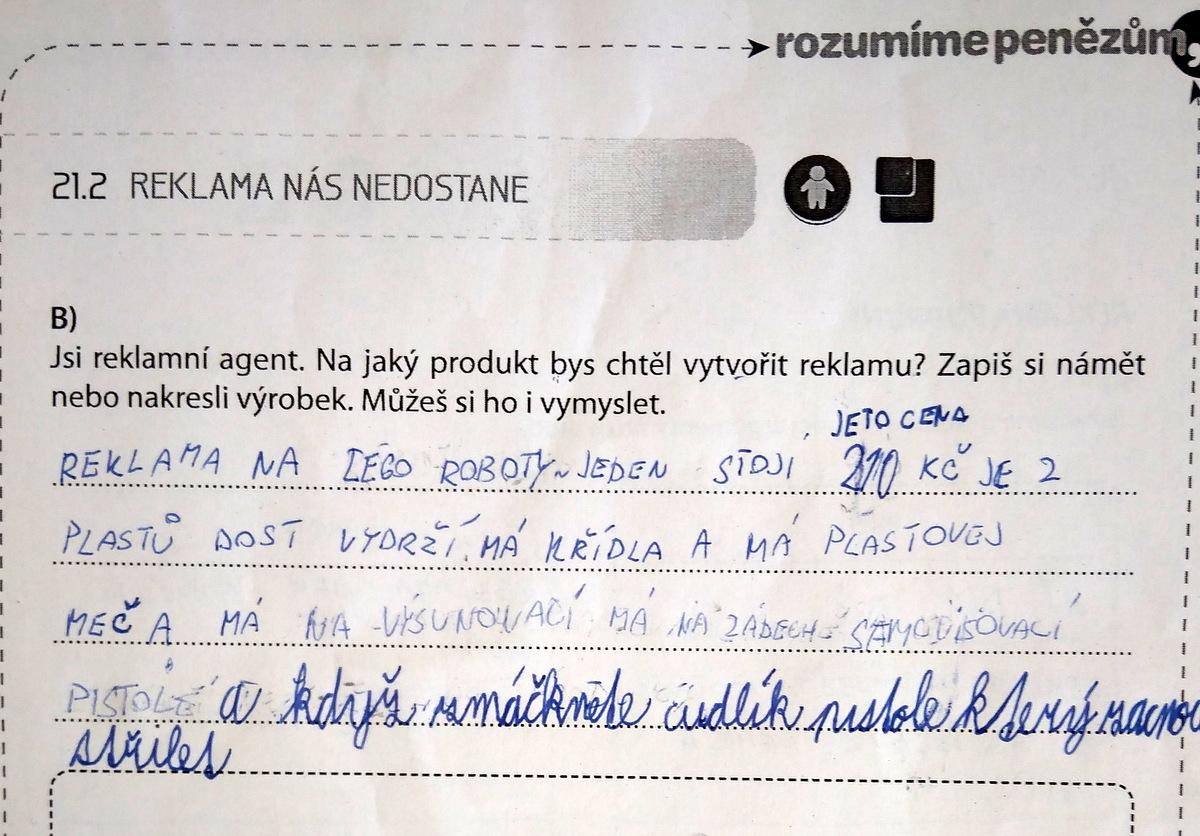 rozumíme penězům
21.2 REKLAMA NÁS NEDOSTANE
B)
Jsi reklamní agent. Na jaký produkt bys chtěl vytvořit reklamu? Zapiš si námět
nebo nakresli výrobek. Můžeš si ho i vymyslet.
JETO CENA
REKLAMA NA LEGO ROBOTY JEDEN STOJI 210 KČ JE 2
PLASTŮ DOST VYDRŽÍ. MÁ KŘÍDLA A MÁ PLASTOVEJ
MEČ A MÁ NA VÝSUNOVACÍ MÁ NA ZÁDECH
PISTOLE a když zmáčknete čudlík pistole který
střílet